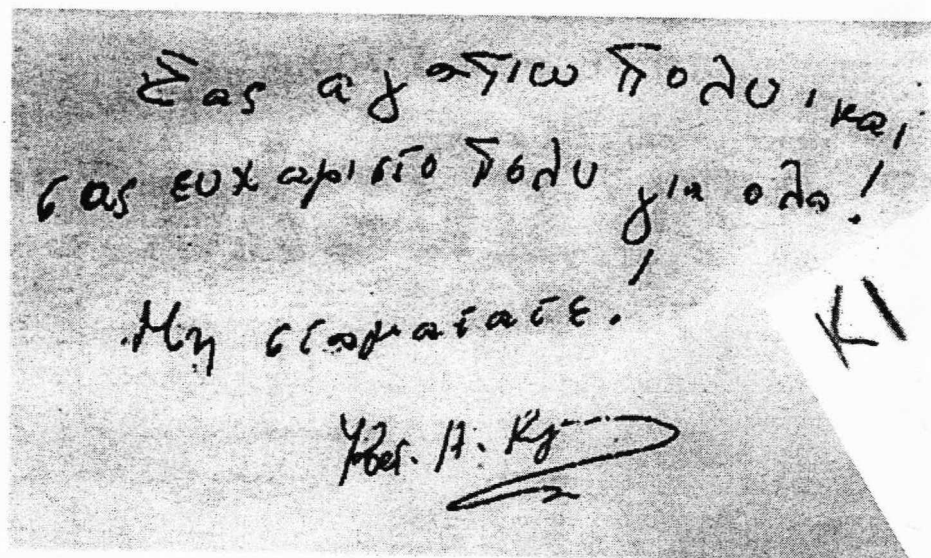 Σας αγαπιω πολυ, και
σας ευχαριστο πολυ για ολα!
Μη σταματατε!
Α. Κ
ΚΙ